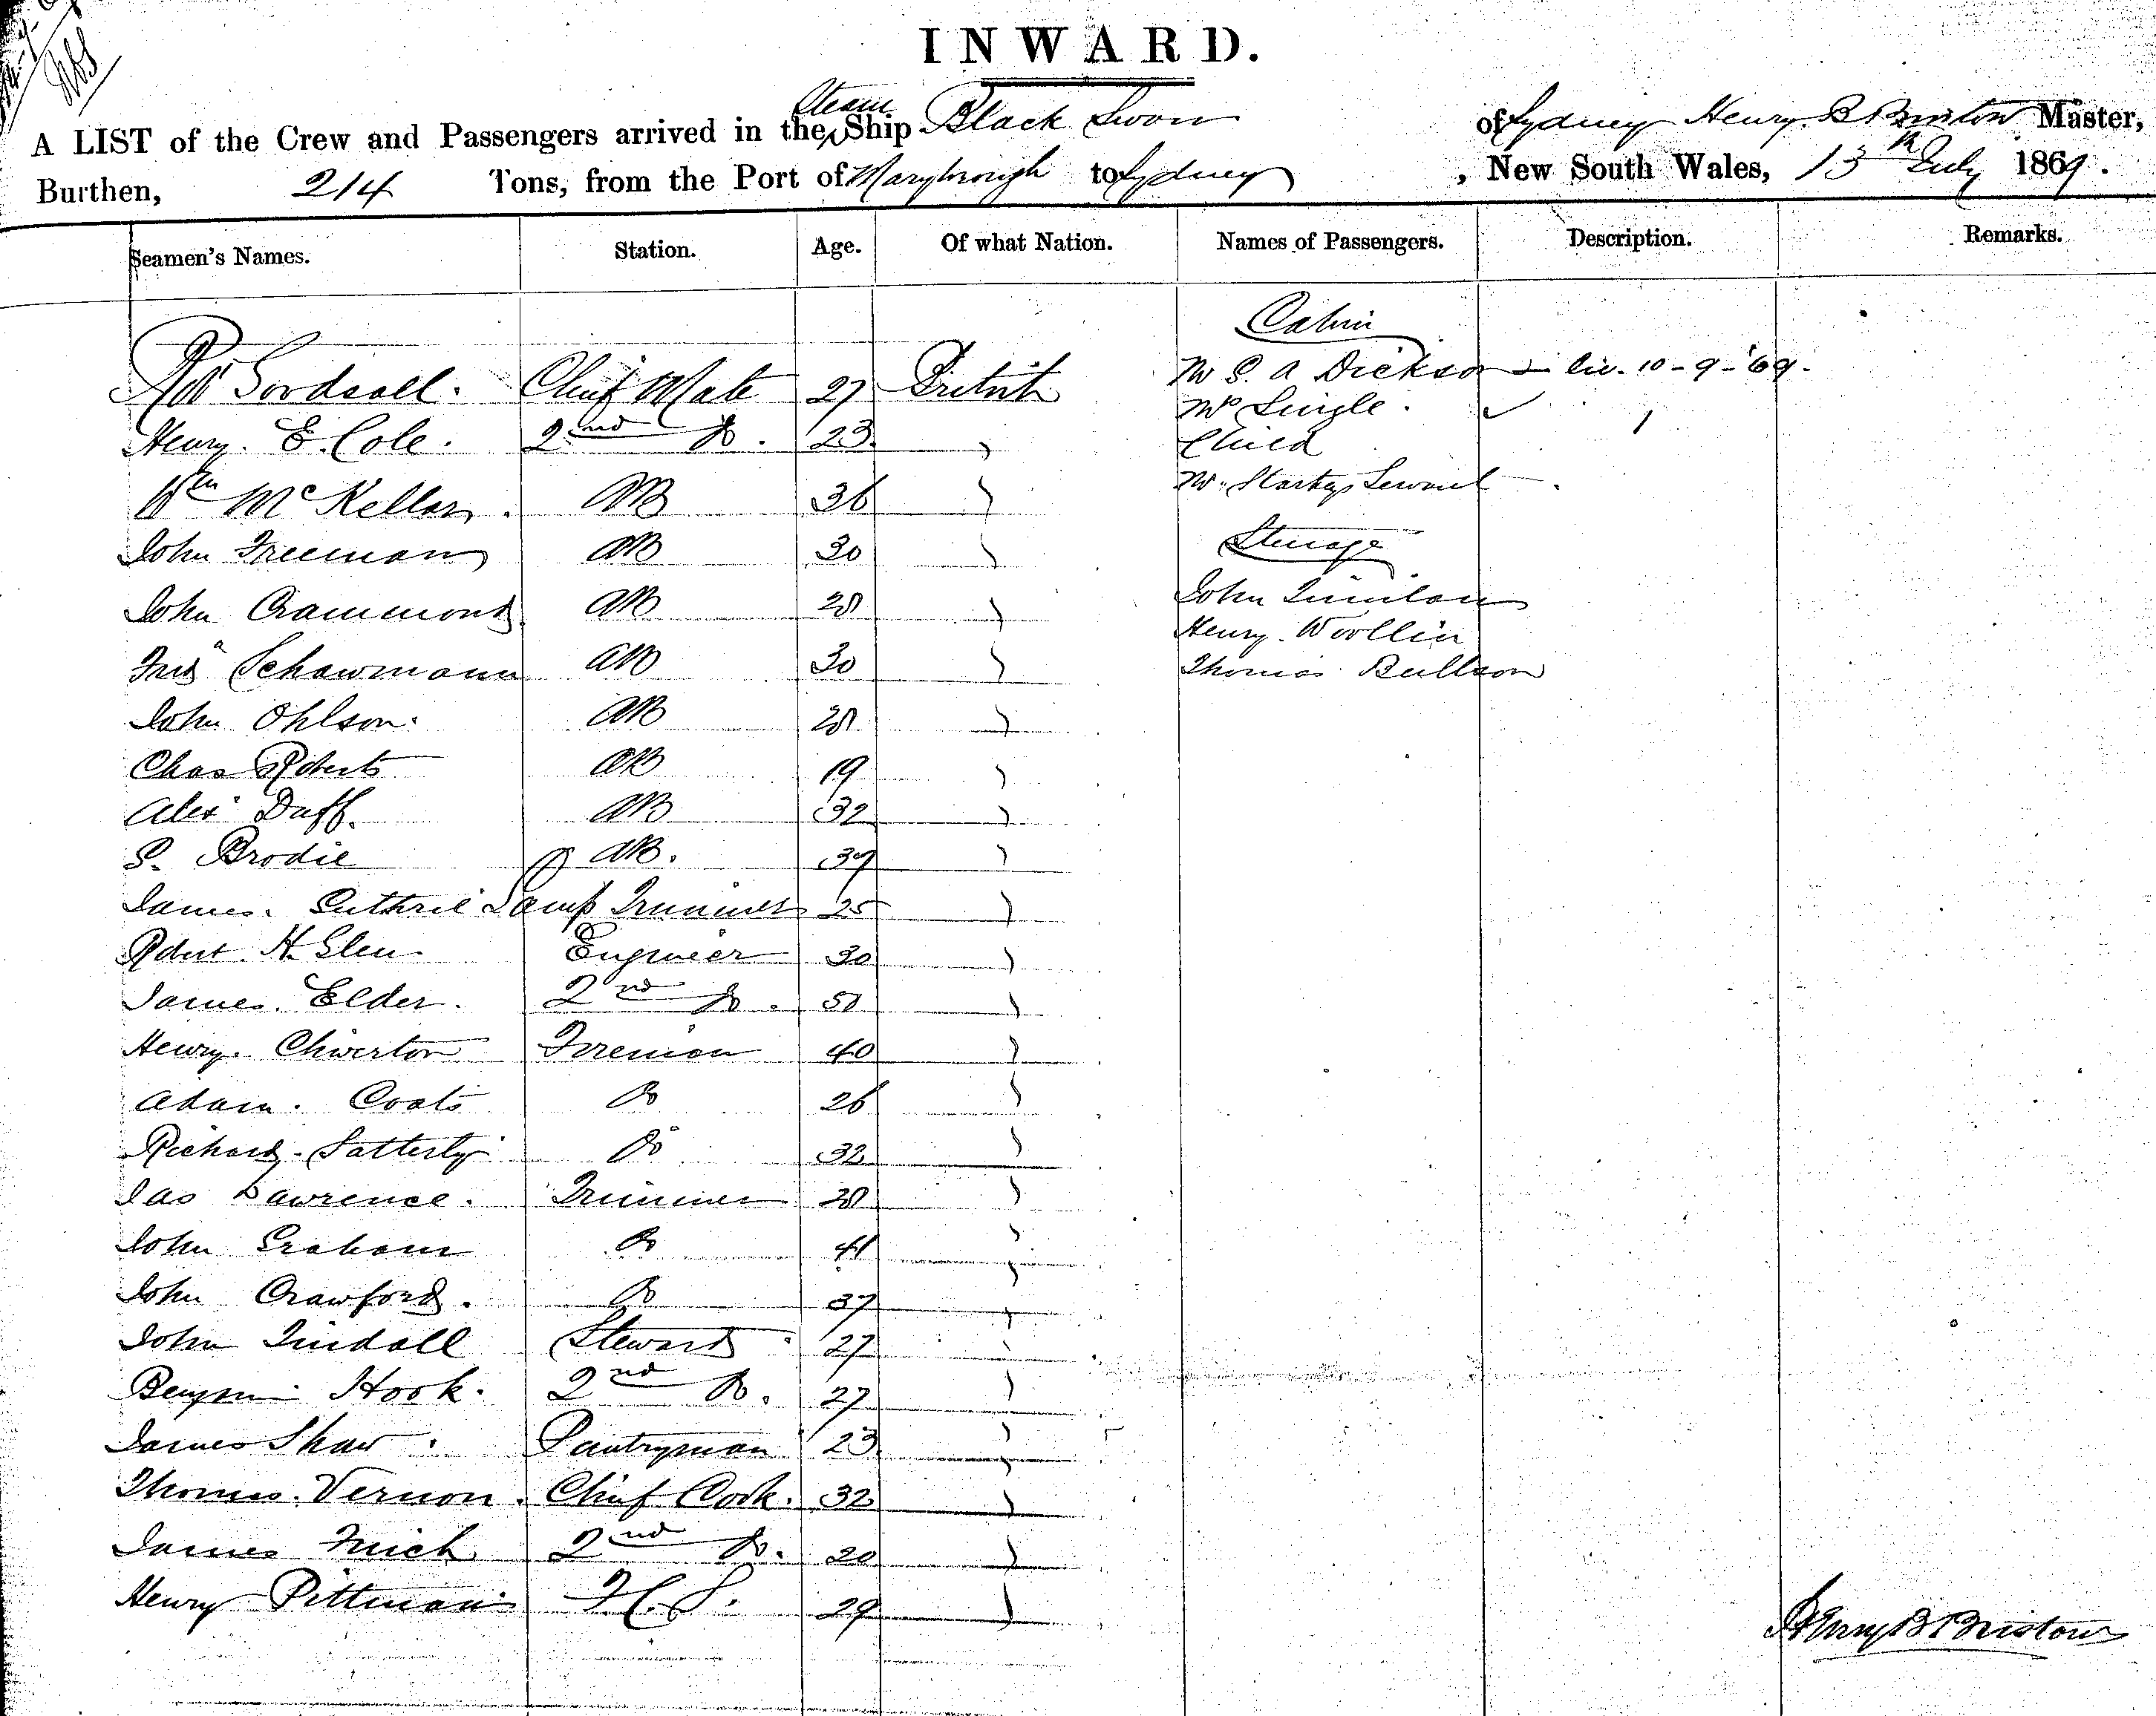 INWARD.
A LIST of the Crew and Passengers arrived in the Steam Ship Black Swan of Sydney Henry B Bristow Master,
Burthen, 214 Tons, from the Port of Maryborough to Sydney, New South Wales, 13th July 1869.
Seamen's Names. Station. Age. Of what Nation. Names of Passengers. Description. Remarks.
Cabin
Chief Mate 27 British M S. A Dickson
Henry. E. Cole. 2nd Do. 23 " Child
Wm McKellar. AB 36 "
Steerage
John Freeman AB 30 "
John Crammond AB 28 " John
Schawmann AB 30 " Henry. Woollin
Thomas Bullson
John Ohlson. AB 28 "
Chas Roberts AB 19 "
Alex Duff. AB 32 "
Brodie AB. 39 "
James. Guthrie Lamp Trimmer 25 "
Robert H. Glen. Engineer 30 "
James. Elder. 2nd Do. "
Henry. Chiverton Fireman 40 "
Adam. Coats Do 26 "
Richard. Satterly Do 32 "
Jas Lawrence. Trimmer 28 "
John Graham Do 41 "
John Crawford. Do 37 "
John Tindall Steward 27 "
Benjm Hook. 2nd Do. 27 "
James Shaw. Pantryman 23 "
Thomas. Vernon. Chief Cook. 32 "
James 2nd Do. 20 "
Henry Pittman 29 "
Henry B Bristow